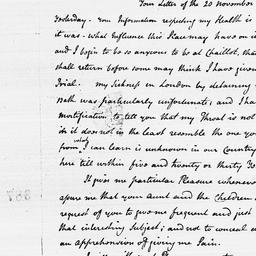 Your Letter of the 20 November
Yesterday. Your Information respecting my Health is
it was. What Influence this Place may have on it
and I begin to be so anxious to be at Chaillot, that
shall return before some may think I have given
Trial. my Sickness in London by detaining
Bath was particularly unfortunate; and I ha
Mortification to tell you that my Throat is not
in it does not in the least resemble the one yo
from which I can learn is unknown in our Country
here till within five and twenty or thirty Ye
It gives me particular Pleasure whenever
assure me that your aunt and the Children a
request of you to give me frequent and just
that interesting Subject; and not to conceal a
an apprehension of giving me Pain.